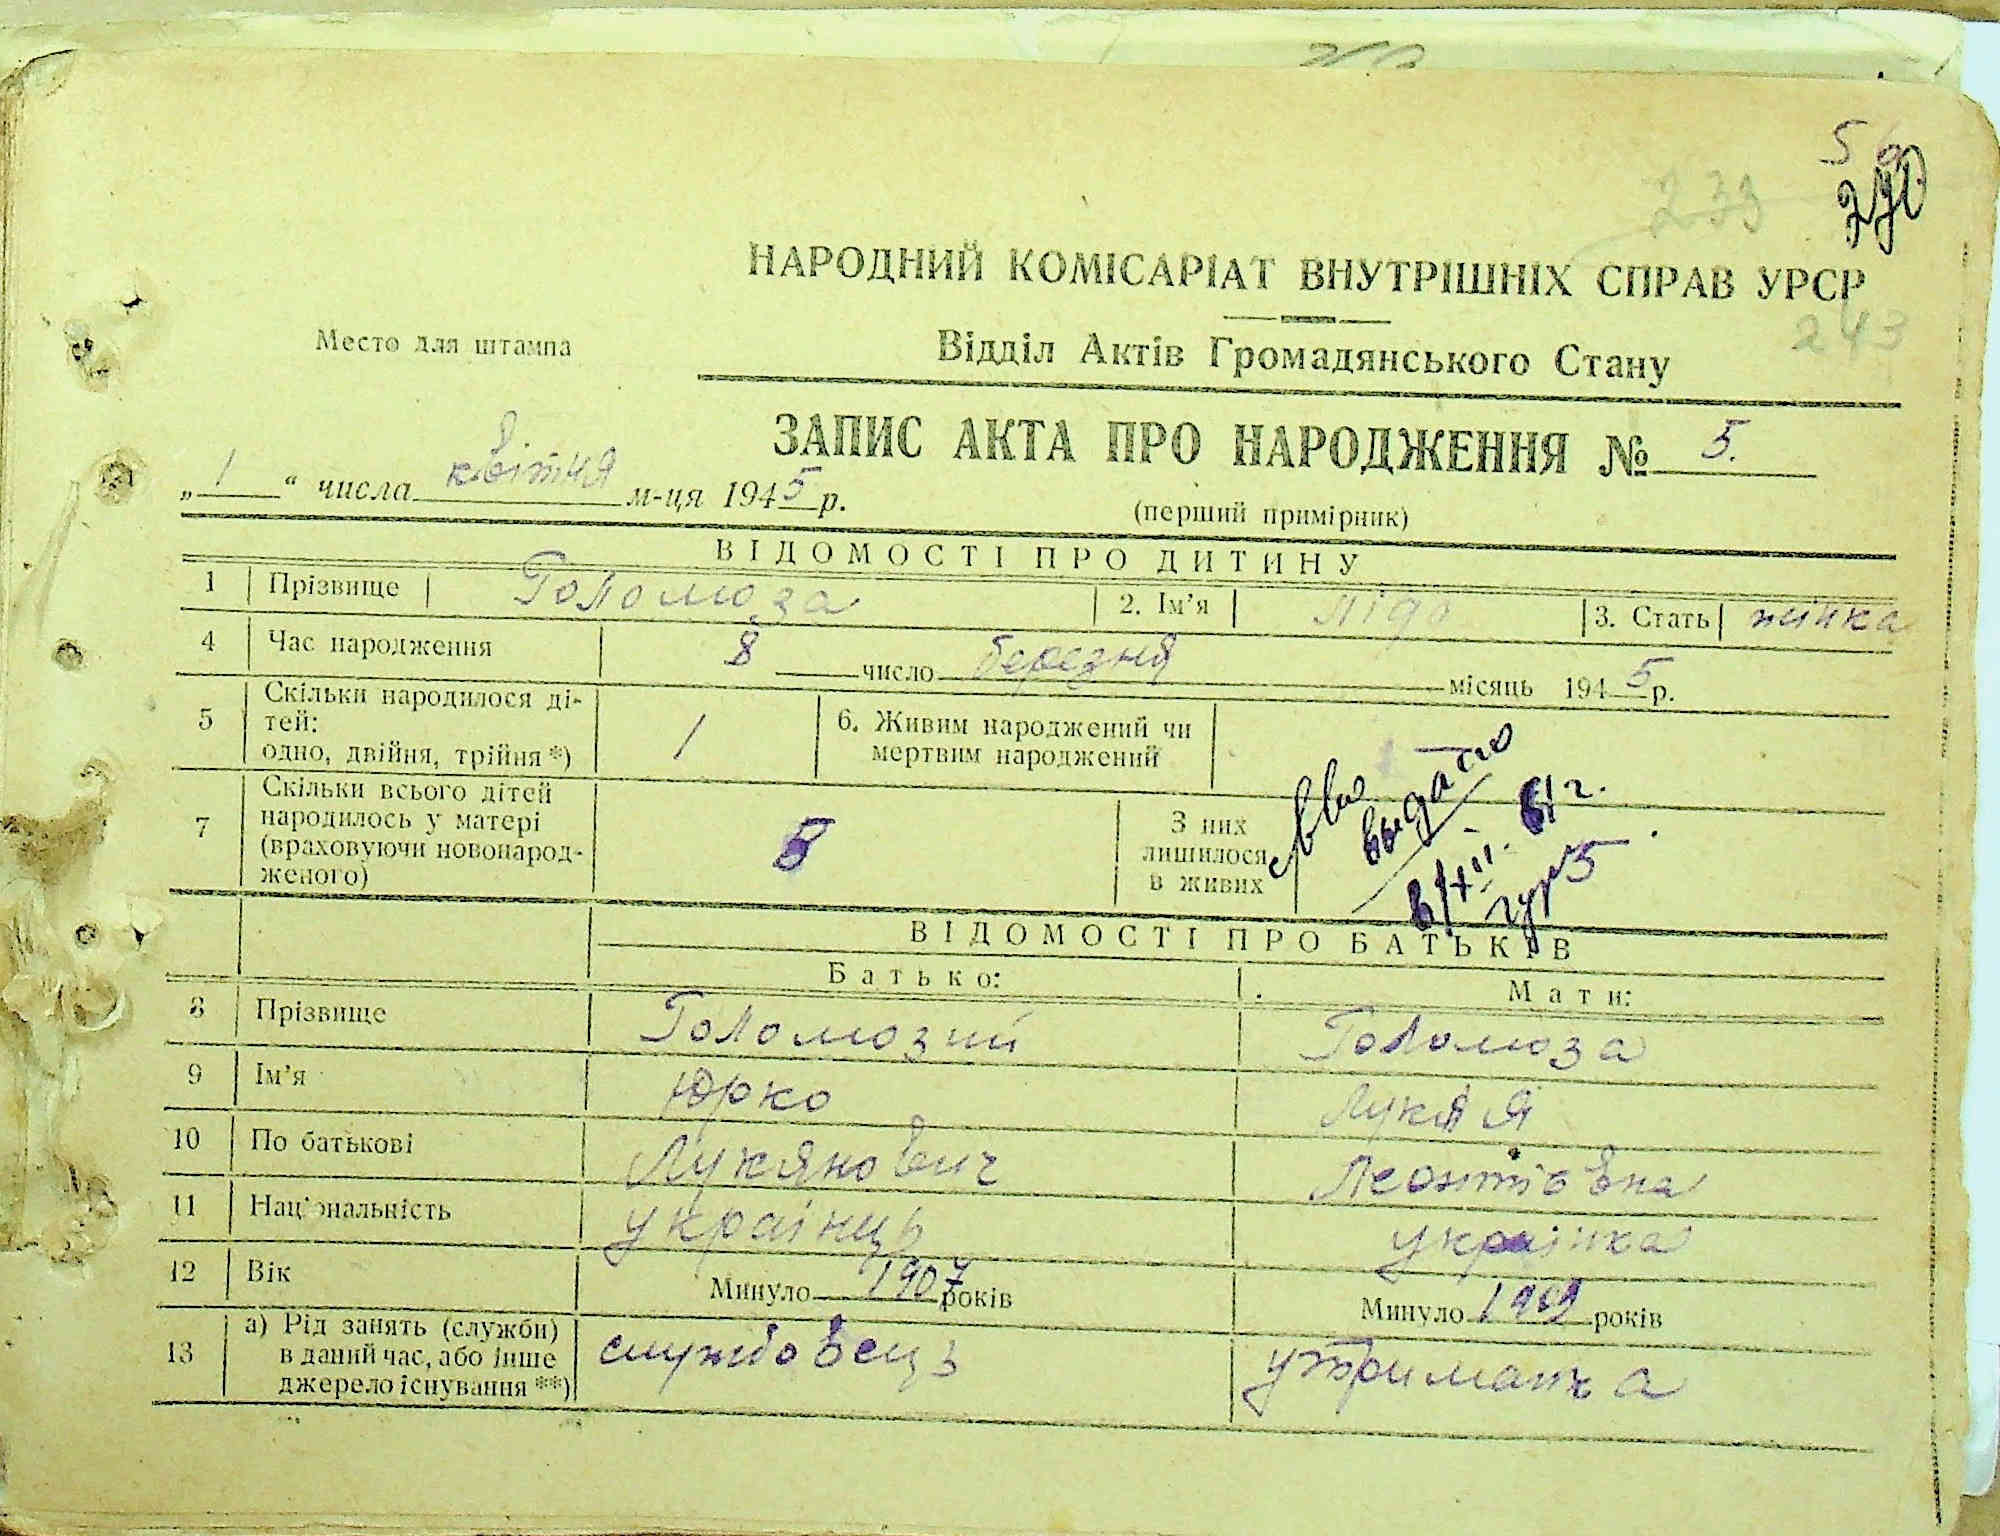 56
270
233
НАРОДНИЙ КОМІСАРІАТ ВНУТРІШНІХ СПРАВ УРСР
243
Место для штампа
Відділ Актів Громадянського Стану
ЗАПИС АКТА ПРО НАРОДЖЕННЯ № 5.
„1“ числа квітня м-ця 1945 р.
(перший примірник)
ВІДОМОСТІ ПРО ДИТИНУ
1 Прізвище Голомоза 2. Ім'я Ліда 3. Стать жінка
4 Час народження 8 число березня місяць 1945 р.
5 Скільки народилося ді-
тей:
одно, двійня, трійня *) 1
6. Живим народжений чи
мертвим народжений
7 Скільки всього дітей
народилось у матері
(враховуючи новонарод-
женого) 5
З них
лишилося
в живих
выдано
ВІДОМОСТІ ПРО БАТЬКІВ
Батько: Мати:
8 Прізвище Голомозий Голомоза
9 Ім'я Юрко Лукія
10 По батькові Лукянович Леонтіовна
11 Національність українць українка
12 Вік Минуло 1907 років Минуло 1909 років
13 а) Рід занять (служби)
в даний час, або інше
джерело існування **) службовець утриманка